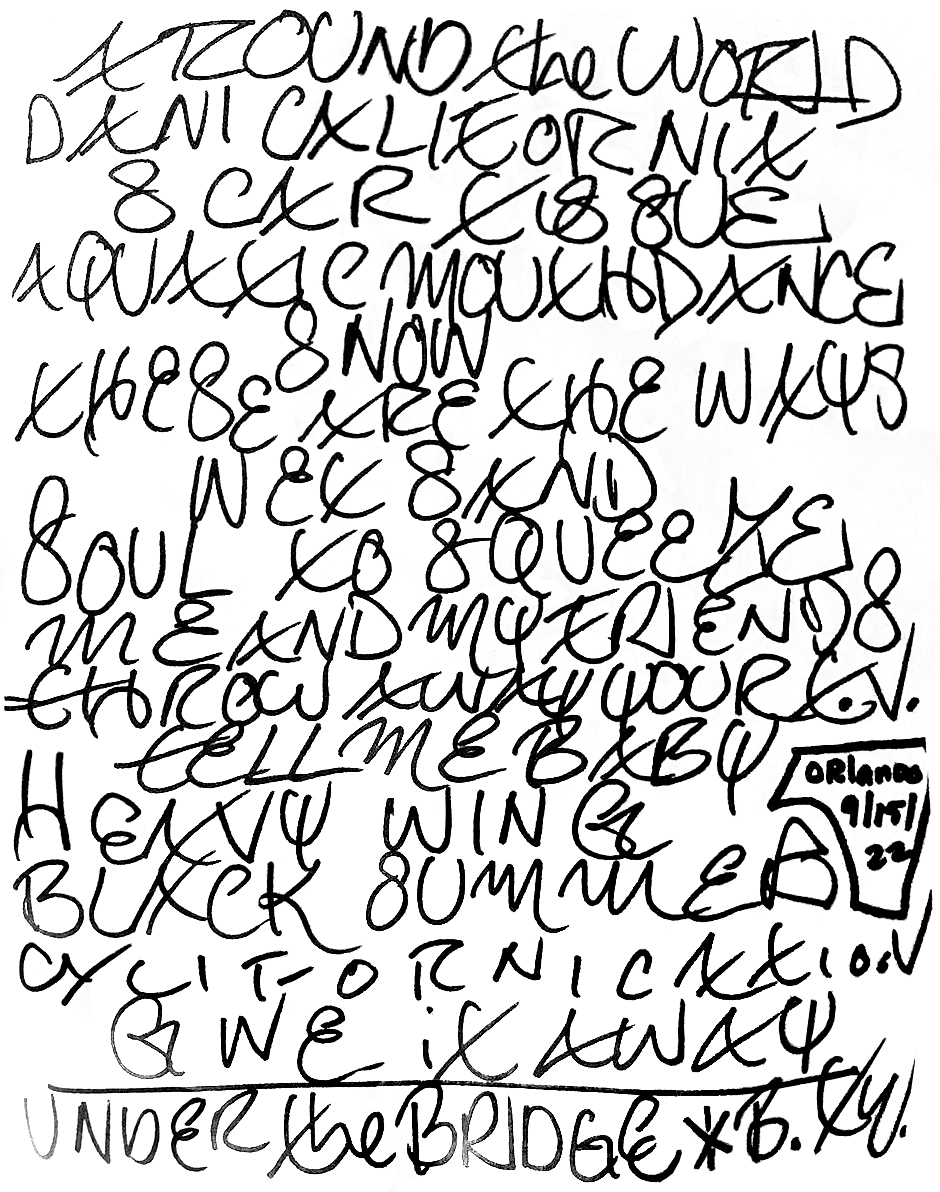 AROUND the WORLD
DANI CALIFORNIA
SCAR TISSUE
AQUATIC MOUTH DANCE
SNOW
THESE ARE THE WAYS
WET SAND
SOUL TO SQUEEZE
ME AND MY FRIENDS
THROW AWAY YOUR T.V.
TELL ME BABY
HEAVY WING
ORlando
9/15/
22
BLACK SUMMER
CALIFORNICATION
GIVE iT AWAY
UNDER the BRIDGE * B.